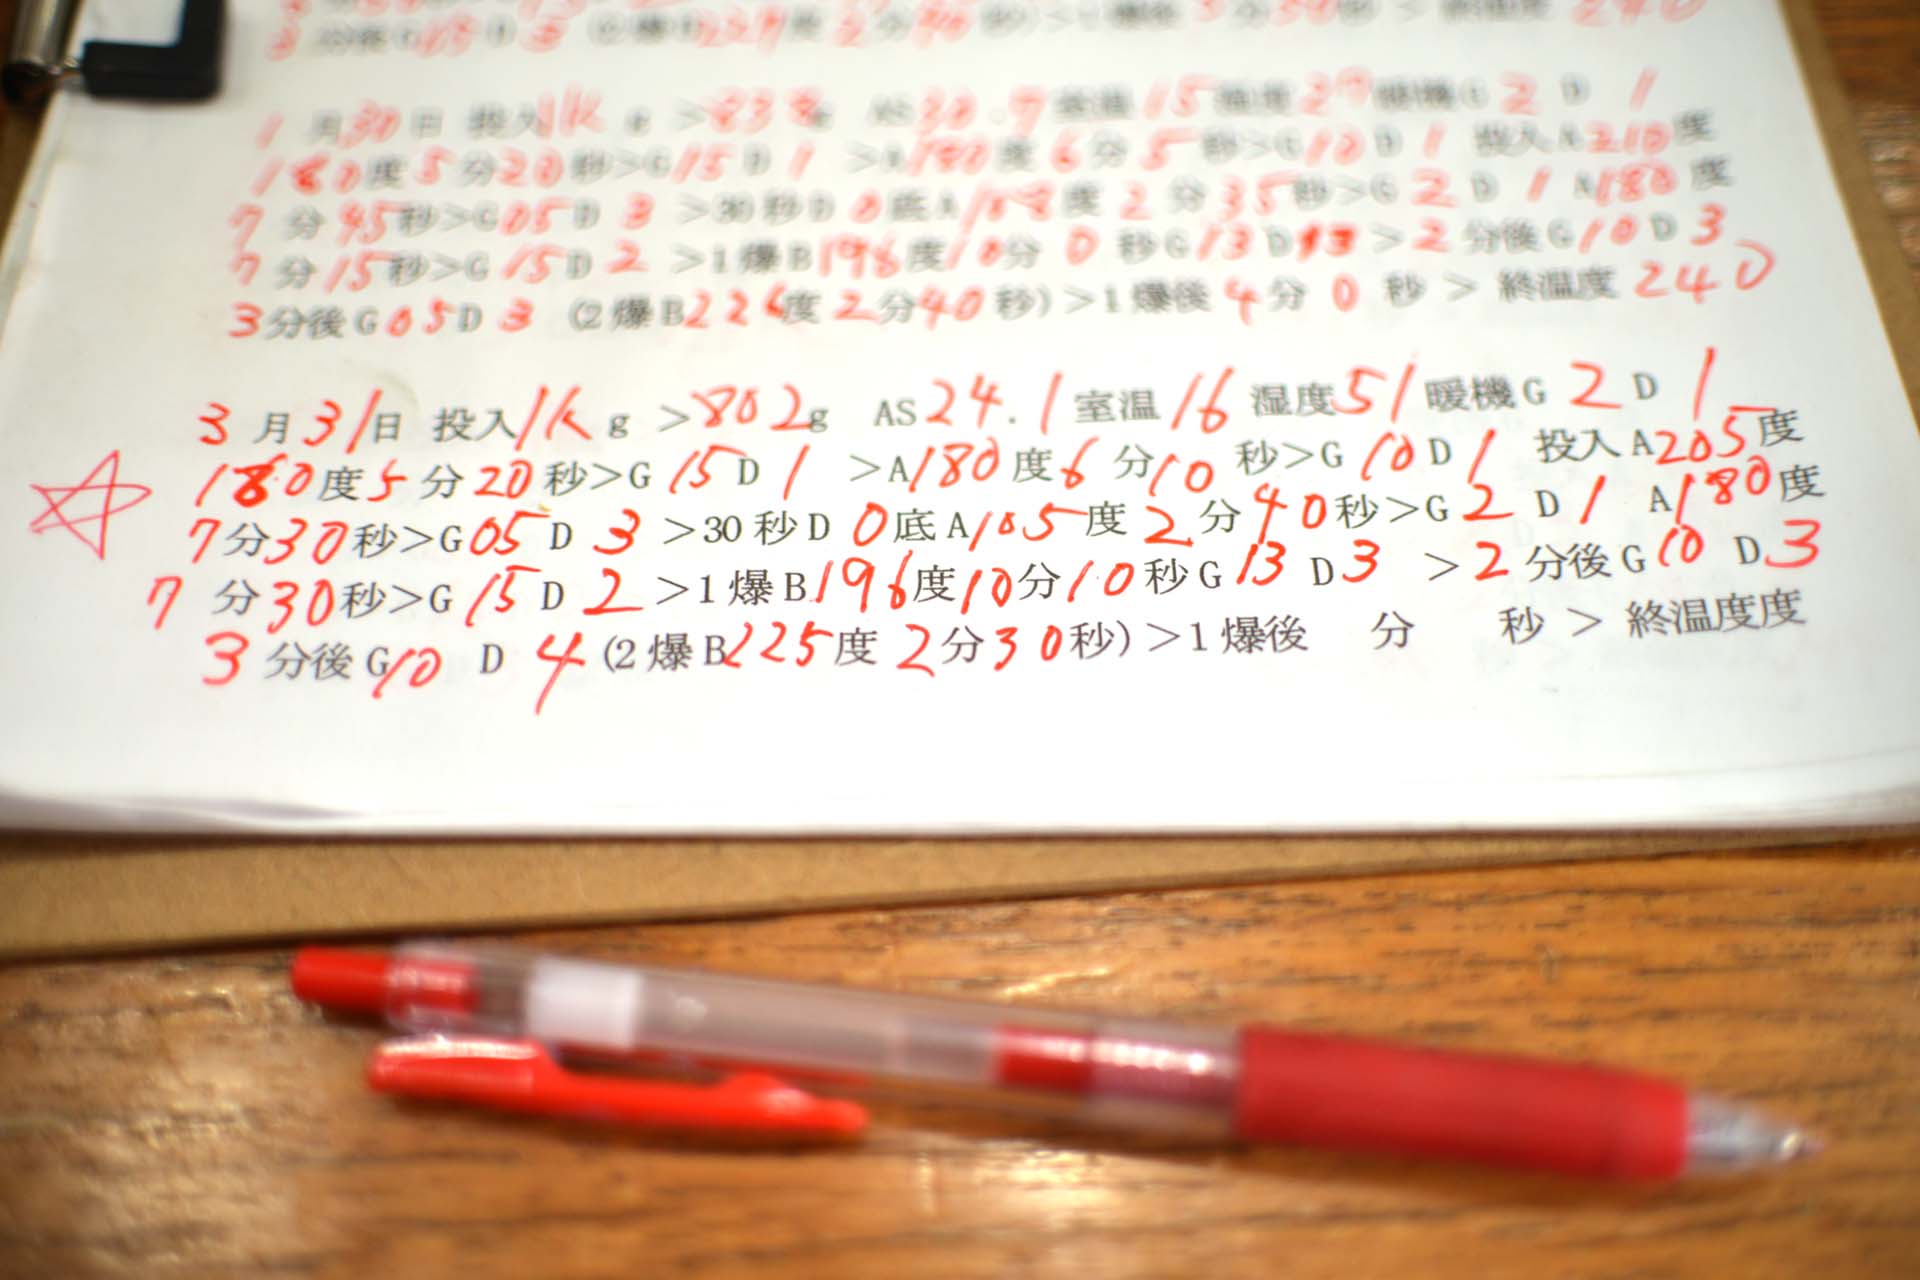 1月30日 投入1Kg >838g AS30.9室温15湿度27暖機G2 D 1
180度5分20秒>G15D 1 >A180度6分5秒>G10D 1 投入A210度
7分45秒>G05D 3 >30秒D 0底A108度2分35秒>G2 D 1 A180度
7分15秒>G15D 2 >1爆B196度10分0秒G13D13>2分後G10D3
3分後G05D3 (2爆B226度2分40秒)>1爆後4分0秒>終温度240
3月31日 投入1Kg >802g AS24.1室温16湿度51暖機G2 D 1
180度5分20秒>G15D 1 >A180度6分10秒>G10D1 投入A205度
7分30秒>G05 D 3 >30秒D 0底A105度2分40秒>G2 D 1 A180度
7分30秒>G15D 2 >1爆B196度10分10秒G13 D3 >2分後G10 D3
3分後G10 D 4(2爆B225度2分30秒)>1爆後 分 秒>終温度度